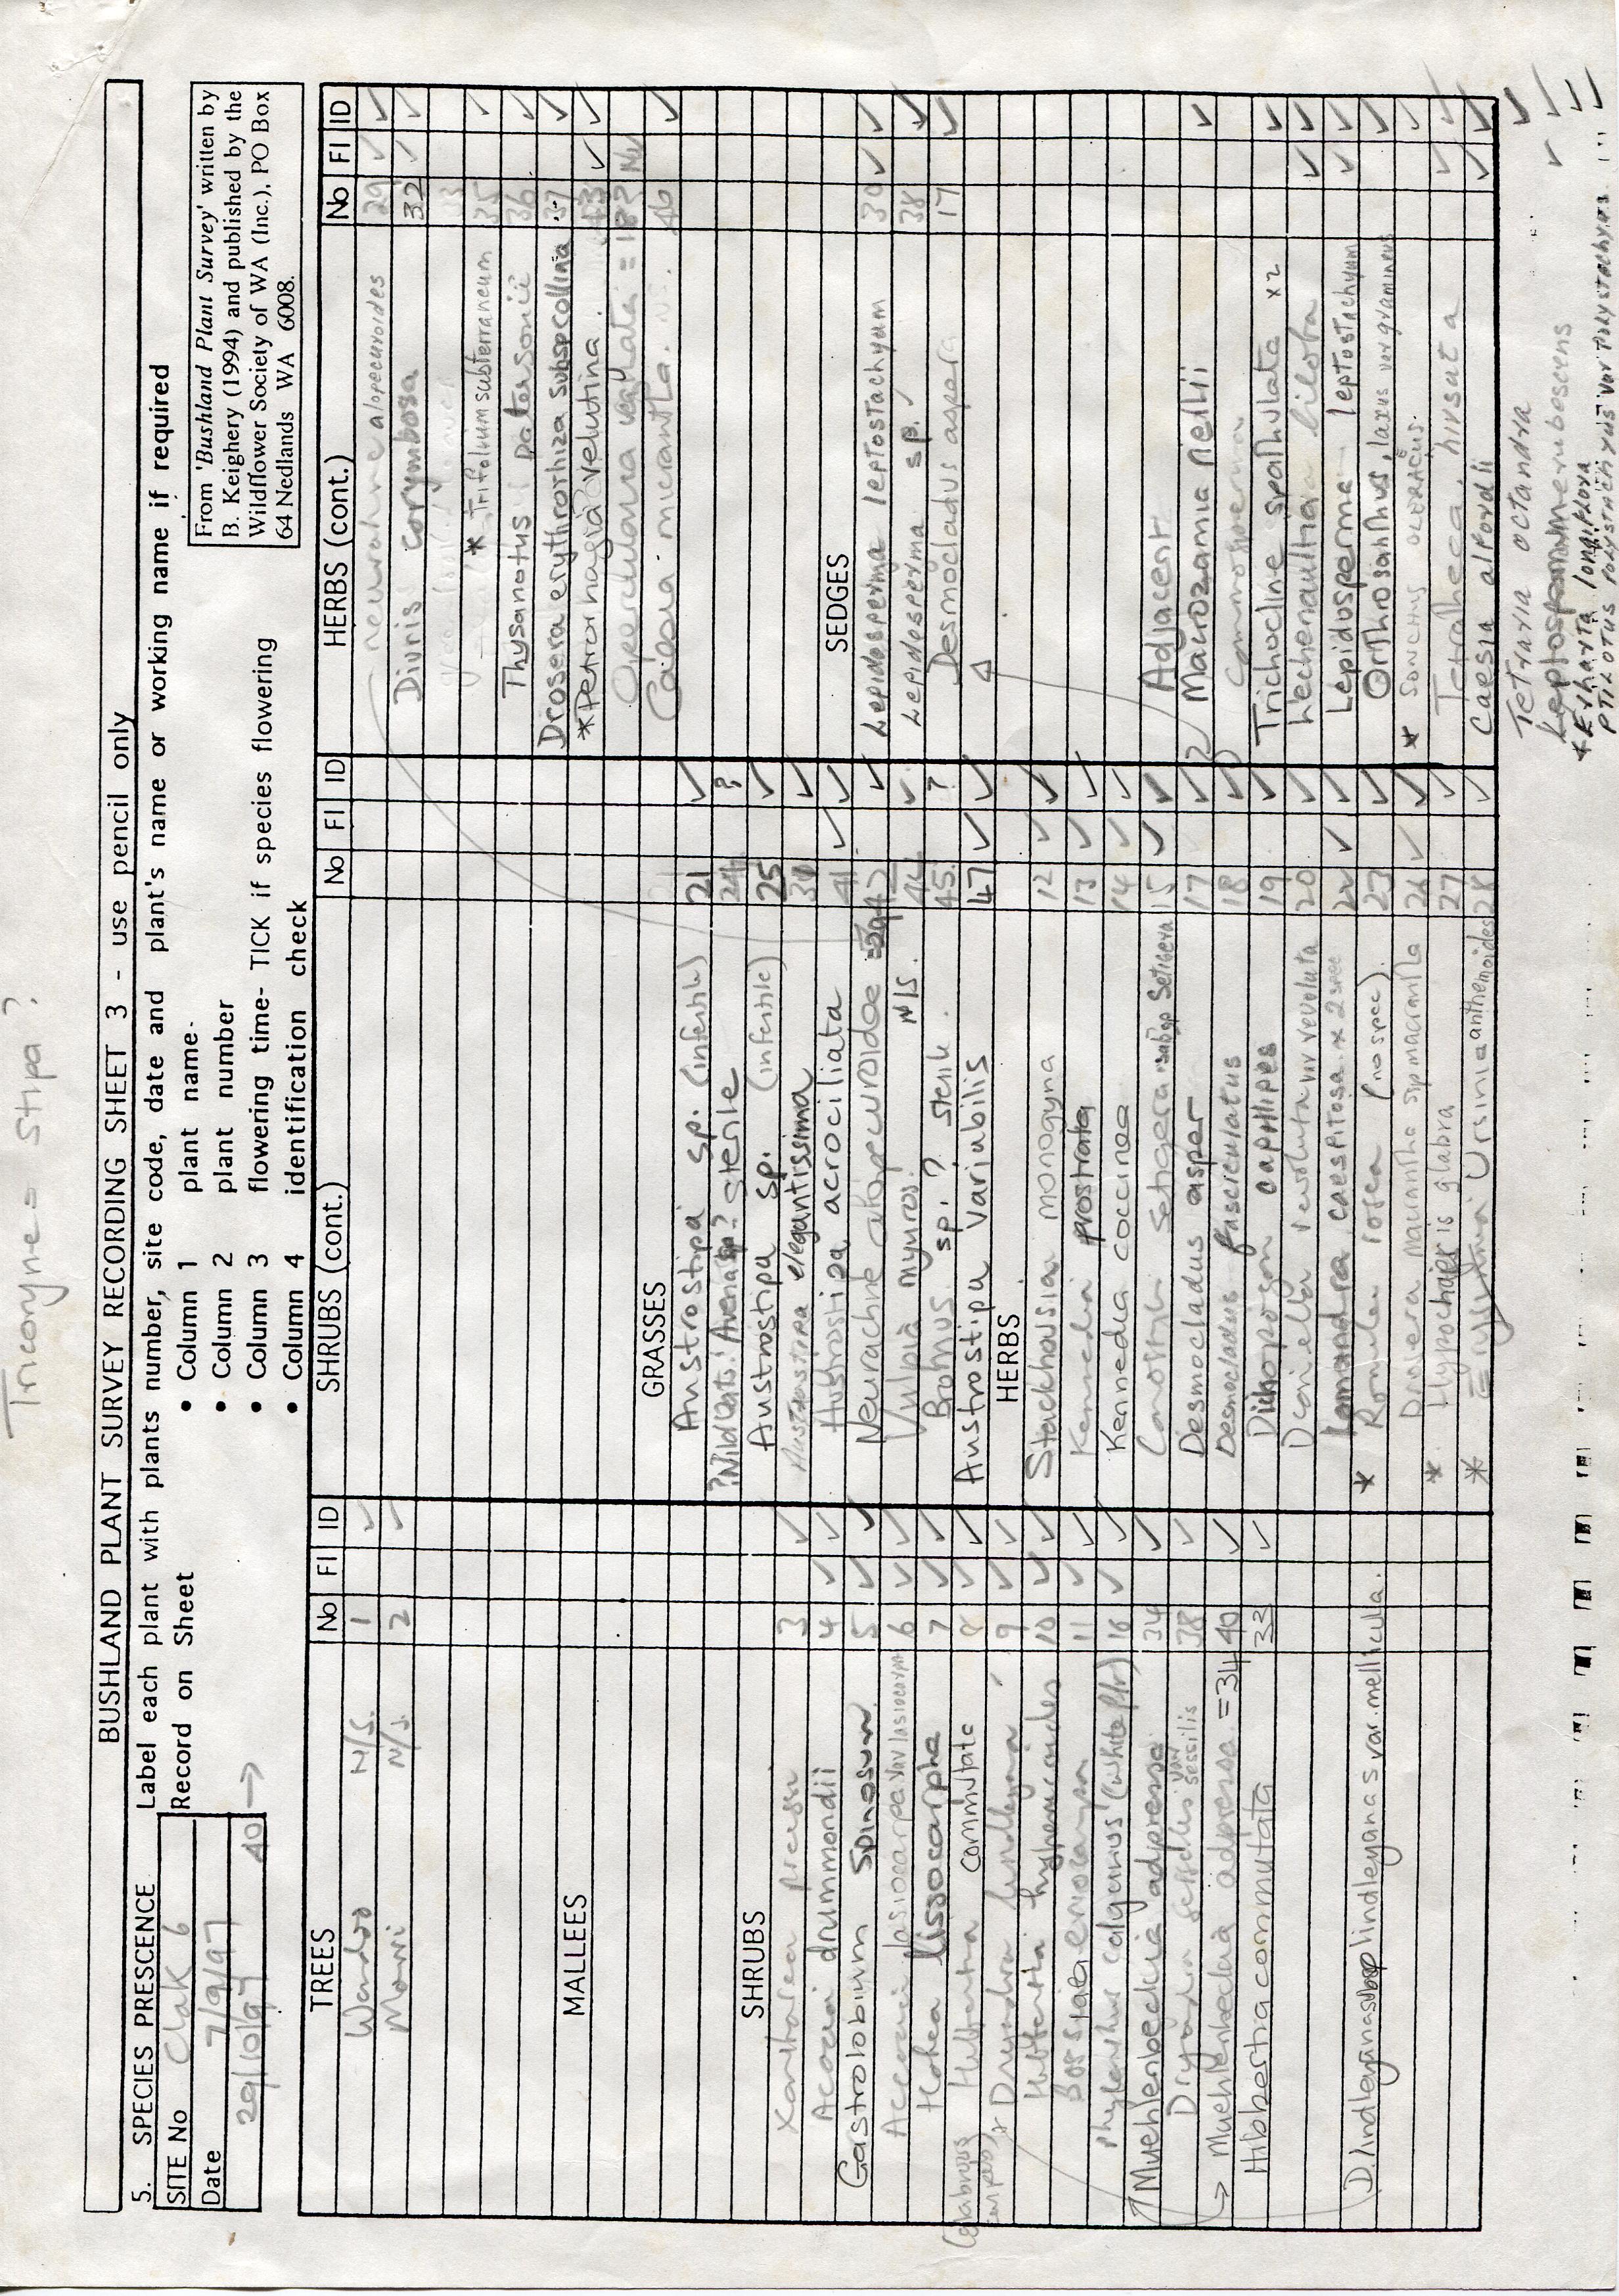 Tricoryne = Stipa?
BUSHLAND PLANT SURVEY RECORDING SHEET 3 - use pencil only
5. SPECIES PRESCENCE
Label each plant with plants number, site code, date and plant's name or working name if required
Record on Sheet
• Column 1 plant name-
• Column 2 plant number
• Column 3 flowering time- TICK if species flowering
• Column 4 identification check
From 'Bushland Plant Survey' written by
B. Keighery (1994) and published by the
Wildflower Society of WA (Inc.), PO Box
64 Nedlands WA 6008.
SITE No Clak 6
Date 7/9/97
29/10/97 40 →
TREES No Fl ID
Wandoo N/S. 1 ✓
Marri N/S. 2 ✓
MALLEES
SHRUBS
Xanthorrea preissii 3 ✓
Acacia drummondii 4 ✓ ✓
Gastrolobium spinosum 5 ✓ ✓
Acacia lasiocarpa var lasiocarpa 6 ✓ ✓
Hovea lissocarpha 7 ✓ ✓
(glabrous
carpels)
Hibbertia commutata 8 ✓ ✓
Dryandra lindleyana 9 ✓ ✓
Hibbertia hypericoides 10 ✓ ✓
Bossiaea eriocarpa 11 ✓ ✓
Phyllanthus calycinus (white flr) 16 ✓ ✓
Muehlenbeckia adpressa 34 ✓
Dryandra sessilis var sessilis 38 ✓
→ Muehlenbeckia adpressa = 34 40 ✓
Hibbertia commutata 33 ✓
D. lindleyana subsp lindleyana var. mellicula.
SHRUBS (cont.) No Fl ID
GRASSES
Austrostipa sp. (infertile) 21 ✓
? Wild Oats? Avena sp? sterile 24 ?
Austrostipa sp. (infertile) 25 ✓
Austrostipa elegantissima ✓
Austrostipa acrociliata 41 ✓ ✓
Neurachne alopecuroidea ✓
Vulpia myuros N/S. ✓
Bromus sp.? sterile. 45. ?
Austrostipa variabilis 47 ✓ ✓
HERBS
Stackhousia monogyna 12 ✓ ✓
Kennedia prostrata 13 ✓ ✓
Kennedia coccinea 14 ✓ ✓
Conostylis setigera subsp setigera 15 ✓ ✓
Desmocladus asper 17 ✓
Desmocladus fasciculatus 18 ✓
Dichopogon capillipes 19 ✓
Dianella revoluta var revoluta 20 ✓
Lomandra caespitosa x 2 spec 22 ✓ ✓
* Romulea rosea (no spec). 23 ✓
Drosera macrantha ssp macrantha 26 ✓ ✓
* Hypochaeris glabra 27 ✓
* Ursinia anthemoides 28 ✓
HERBS (cont.) No Fl ID
neurachne alopecuroides 29 ✓ ✓
Diuris corymbosa 32 ✓ ✓
33
* Trifolium subterraneum 35 ✓
Thysanotus patersonii 36 ✓
Drosera erythrorhiza subsp collina 37 ✓
* Petrorhagia velutina 43 ✓ ✓
Opercularia vaginata = 18?
Caladenia micrantha. N.S. 46 ✓
SEDGES
Lepidosperma leptostachyum 30 ✓ ✓
Lepidosperma sp. 38 ✓
Desmocladus aspera 17 ✓
Adjacent
Macrozamia riedlii ✓
Trichocline spathulata x2 ✓
Lechenaultia biloba ✓ ✓
Lepidosperma leptostachyum ✓ ✓
Orthrosanthus laxus var gramineus ✓
* SONCHUS OLERACEUS. ✓
Tetratheca hirsuta ✓ ✓
Caesia alfordii ✓ ✓
TETRARIA OCTANDRA ✓
Leptospermum erubescens ✓ ✓
* EHRHARTA longiflora ✓
PTILOTUS POLYSTACHYUS var POLYSTACHYUS ✓